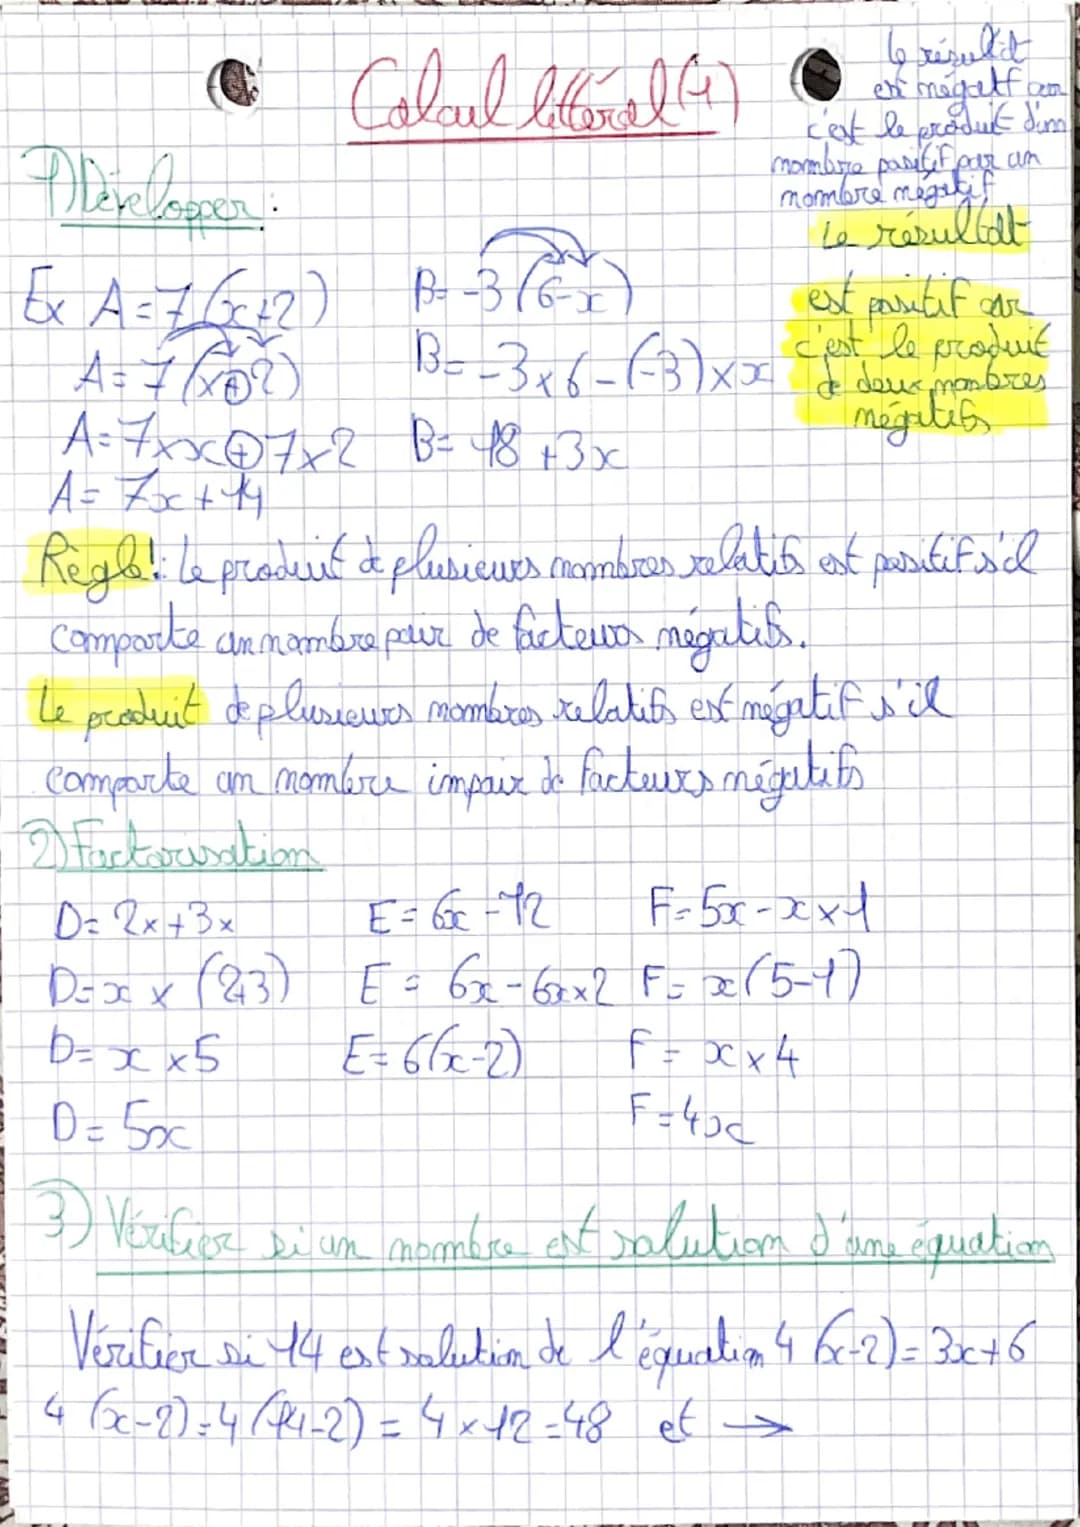 Calcul littéral (1)
le résultat
est négatif car
c'est le produit d'un
nombre positif par un
nombre négatif
Le résultat
est positif car
c'est le produit
de deux nombres
négatifs
1) Développer :
Ex A = 7(x+2)
A = 7(x+2)
A = 7×x+7×2
A = 7x+14
B = -3(6-x)
B = -3×6-(-3)×x
B = -18+3x
Règle! : Le produit de plusieurs nombres relatifs est positif s'il
comporte un nombre pair de facteurs négatifs.
Le produit de plusieurs nombres relatifs est négatif s'il
comporte un nombre impair de facteurs négatifs
2) Factorisation
D = 2x+3x
D = x × (2+3)
D = x × 5
D = 5x
E = 6x - 12
E = 6x - 6x×2
E = 6(x-2)
F = 5x - x × 1
F = x(5-1)
F = x × 4
F = 4x
3) Vérifier si un nombre est solution d'une équation
Vérifier si 14 est solution de l'équation 4(x-2) = 3x+6
4(x-2) = 4(14-2) = 4 × 12 = 48 et →